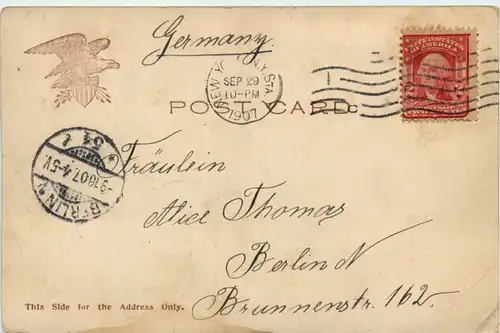 Germany
NEW YORK, N.Y. STA
SEP 29
10-PM
1907
UNITED STATES
OF AMERICA
2 2
POST CARD
BERLIN N
9.10.07.4-5V.
54
Fräulein
Alice Thomas
Berlin N
Brunnenstr. 162.
This Side for the Address Only.